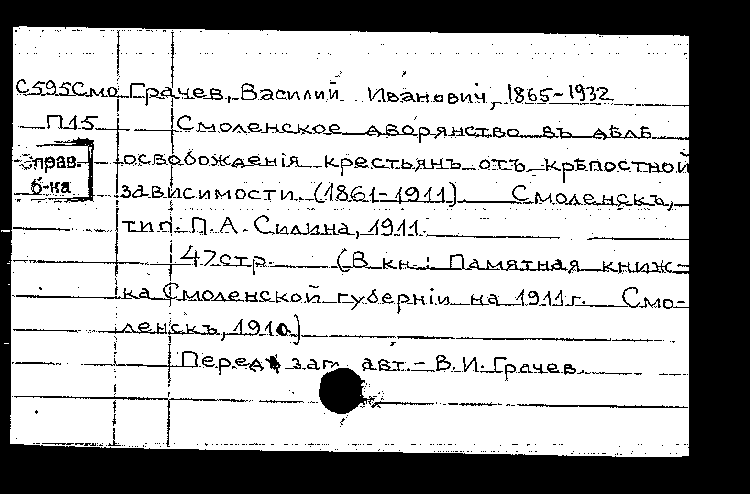 С595Смо Грачев, Василий Иванович, 1865-1932
П15 Смоленское дворянство въ дѣлѣ
Справ. б-ка
освобожденія крестьянъ отъ крѣпостной
зависимости. (1861-1911). Смоленскъ,
тип. П.А. Силина, 1911.
47стр. (В кн.: Памятная книж-
ка Смоленской губерніи на 1911г. Смо-
ленскъ, 1910.)
Перед заг. авт. - В.И. Грачев.